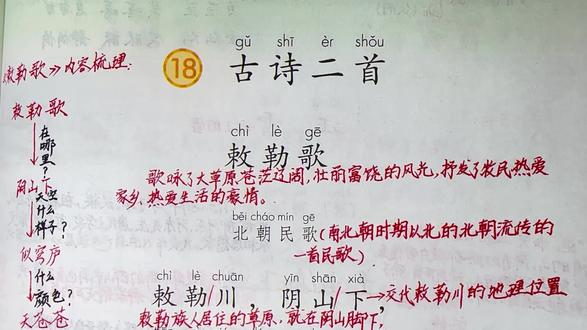 gǔ shī èr shǒu
18 古诗二首
敕勒歌》内容梳理：
敕勒歌
在哪里？
阴山下
天空什么样子？
似穹庐
什么颜色？
天苍苍
chì lè gē
敕勒歌
歌咏了大草原苍茫辽阔，壮丽富饶的风光，抒发了牧民热爱
家乡、热爱生活的豪情。
běi cháo mín gē
北朝民歌（南北朝时期以北的北朝流传的
一首民歌）
chì lè chuān yīn shān xià
敕勒/川，阴山/下，→交代敕勒川的地理位置
敕勒族人居住的草原，就在阴山脚下，